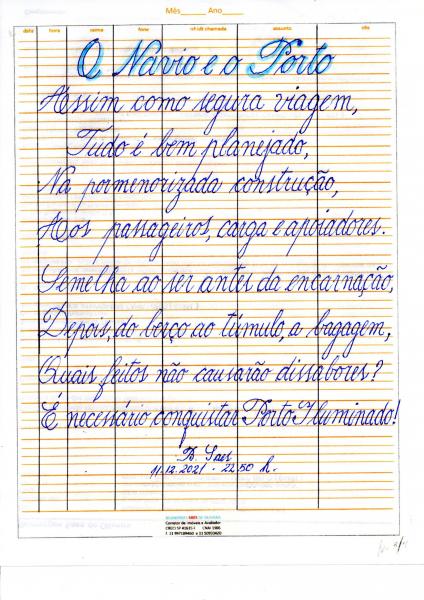 Mês____ Ano____
data hora nome fone nº/dt chamada assunto obs
O Navio e o Porto
Assim como segura viagem,
Tudo é bem planejado,
Na pormenorizada construção,
Aos passageiros, carga e apoiadores.
Semelha ao ser antes da encarnação,
Depois, do berço ao túmulo, a bagagem,
Quais feitos não causarão dissabores?
É necessário conquistar Porto Iluminado!
11.12.2021 - 22:50 h.
Corretor de Imóveis e Avaliador